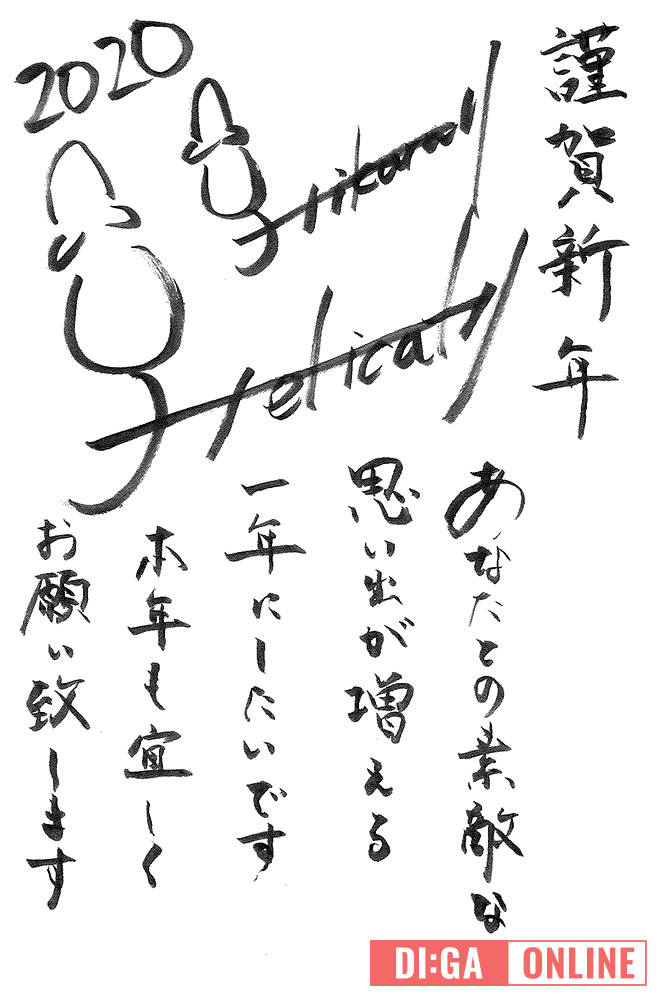 謹賀新年
2020
Hikaru//
H-el-ical//
あなたとの素敵な
思い出が増える
一年にしたいです
本年も宜しく
お願い致します
DI:GA ONLINE